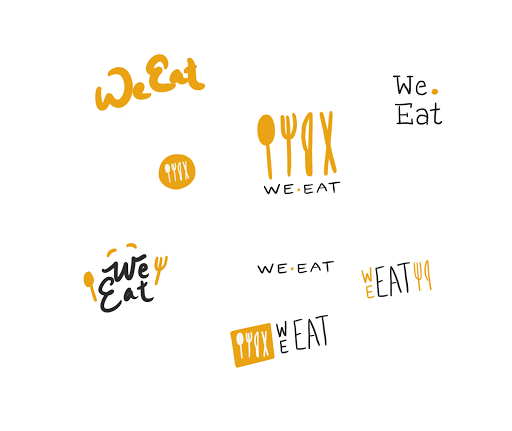 We Eat
We.
Eat
WE·EAT
We
Eat
WE·EAT
WE EAT
WE EAT